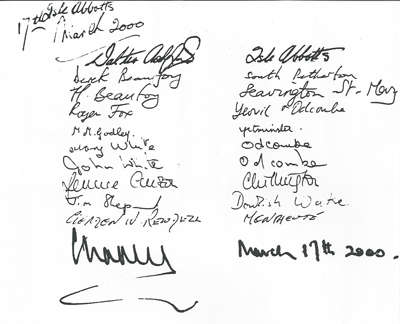 17th Isle Abbotts
March 2000
Walter Isle Abbotts
Derek Beaufoy South Petherton
H. Beaufoy Seavington St. Mary
Roger Fox Yeovil & Odcombe
M.R. Godley. Yetminster.
Mary White Odcombe
John White Odcombe
Chillington
Jim Dowlish Wake
March 17th 2000.